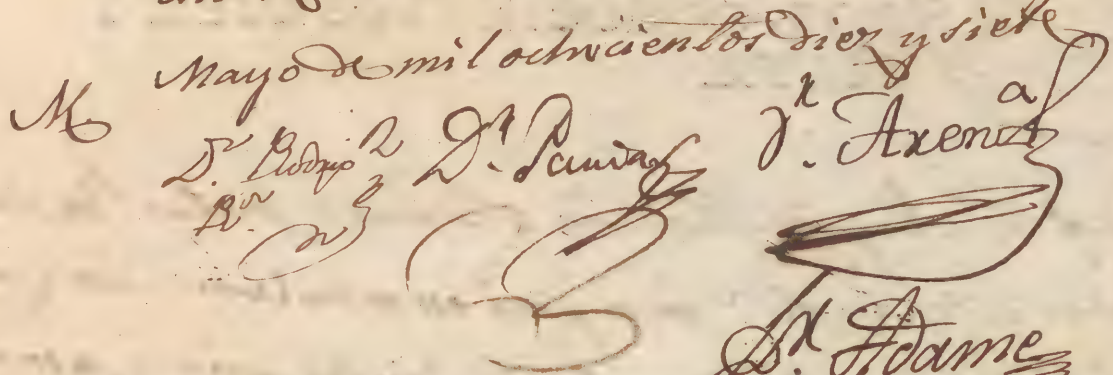 Mayo de mil ochocientos diez y siete
M
D.r Rodrig.z D.r D.r Arenz.a
R.or
D.r Adame